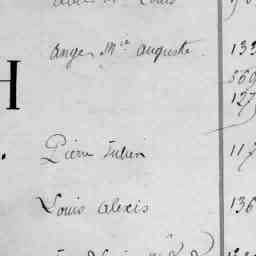 Louis
Ange M.ie auguste. 133
569
127
H
Pierre Julien 117
Louis alexis 136